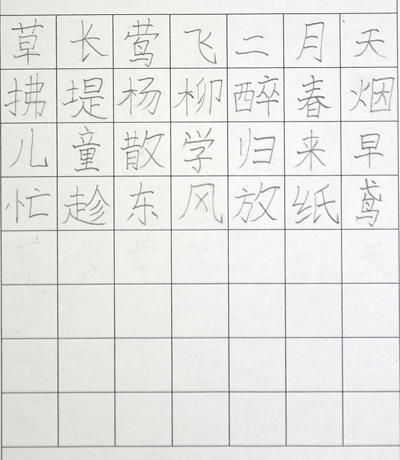 草长莺飞二月天
拂堤杨柳醉春烟
儿童散学归来早
忙趁东风放纸鸢